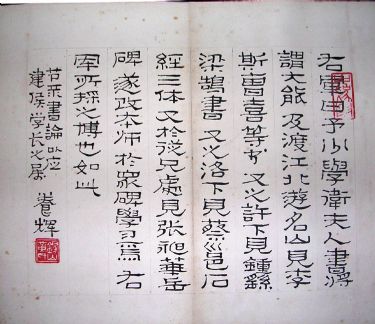 右軍曰予少學衛夫人書將
謂大能及渡江北遊名山見李
斯曹喜等書又之許下見鍾繇
梁鵠書又之洛下見蔡邕石
經三体又於從兄處見張昶華岳
碑遂改本師於衆碑學習焉右
軍所採之博也如此
节录書論以应
建侯学长之属 辉